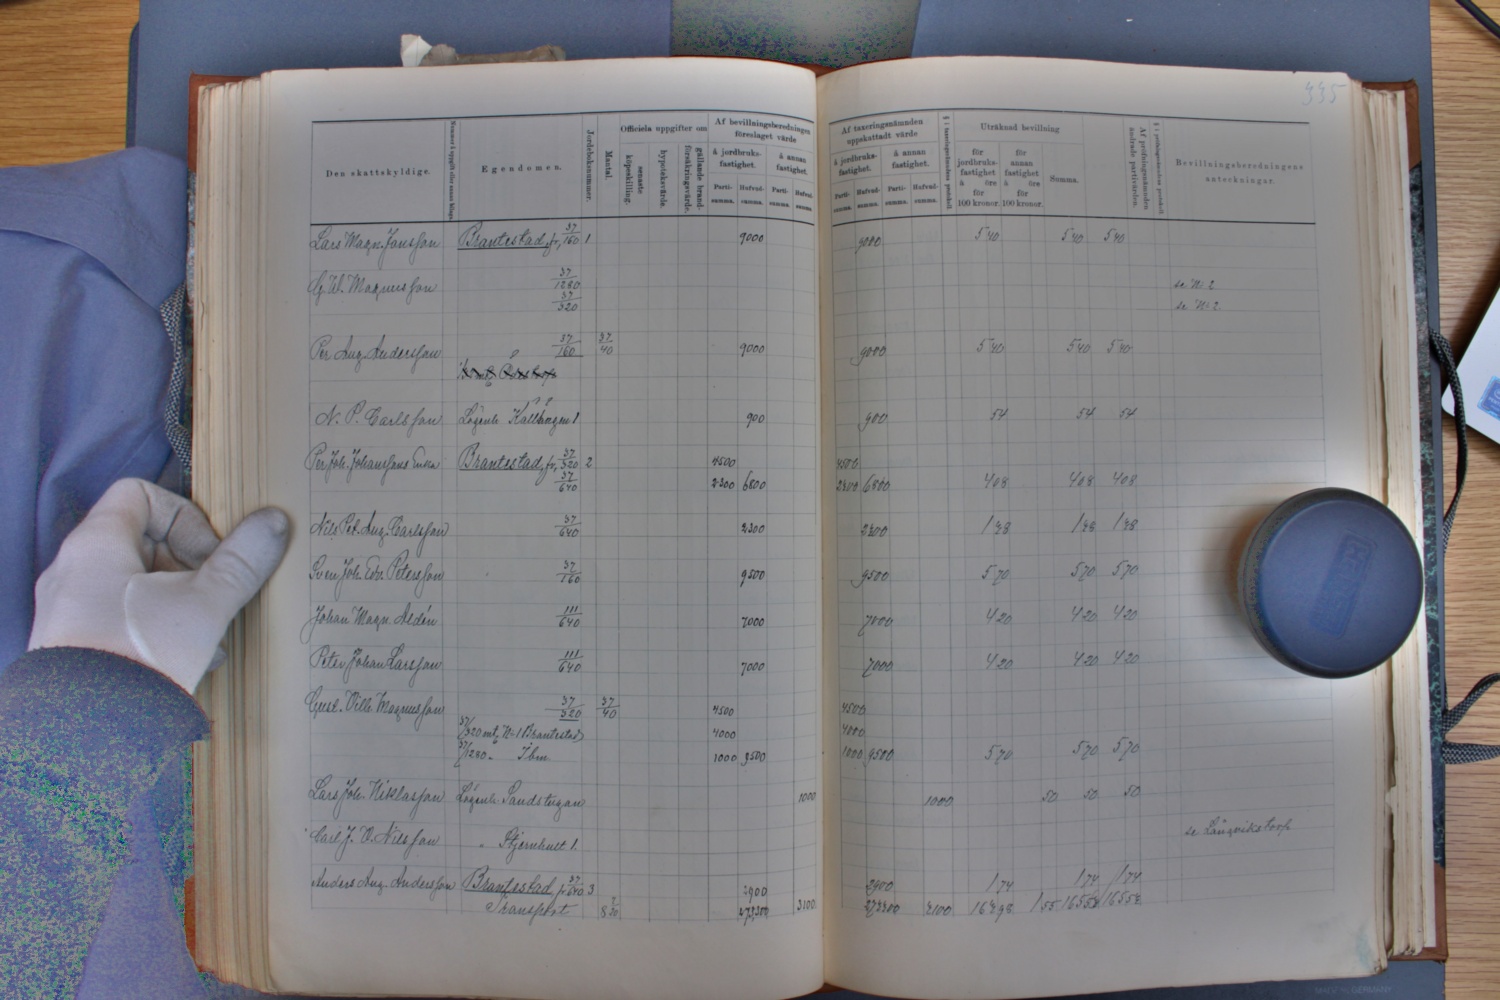 335
Den skattskyldige.
Egendomen.
Jordeboksnummer.
Mantal.
Officiela uppgifter om
senaste köpeskilling.
hypoteksvärde.
gällande brandförsäkringsvärde.
Af bevillningsberedningen föreslaget värde
å jordbruksfastighet.
å annan fastighet.
Partisumma.
Hufvudsumma.
Partisumma.
Hufvudsumma.
Af taxeringsnämnden uppskattadt värde
å jordbruksfastighet.
å annan fastighet.
Partisumma.
Hufvudsumma.
Partisumma.
Hufvudsumma.
§ i taxeringsnämndens protokoll
Uträknad bevillning
för jordbruksfastighet à öre för 100 kronor.
för annan fastighet à öre för 100 kronor.
Summa.
Af pröfningsnämnden ändrade partivärden.
Bevillningsberedningens anteckningar.
Lars Magn. Jonsson Brantestad, fr, 37/160 1 9000 9000 5 40 5 40 5 40
G. W. Magnusson 37/1280 se N: 2
37/320 se N: 2
Per Aug. Andersson 37/160 37/40 9000 9000 5 40 5 40 5 40
N. P. Carlsson Lägenh. Källhagen 1 900 900 54 54 54
Per Joh. Johanssons Enka Brantestad, fr, 37/320 2 4500 4500
37/640 2300 6800 2300 6800 4 08 4 08 4 08
Nils Pet. Aug. Carlsson 37/640 2300 2300 1 38 1 38 1 38
Sven Joh. Edv. Petersson 37/160 9500 9500 5 70 5 70 5 70
Johan Magn. Aldén 111/640 7000 7000 4 20 4 20 4 20
Peter Johan Larsson 111/640 7000 7000 4 20 4 20 4 20
Gust. Vilh. Magnusson 37/320 37/40 4500 4500
37/320 mt. N:o 1 Brantestad 4000 4000
37/1280 " Ibm 1000 9500 1000 9500 5 70 5 70 5 70
Lars Joh. Niklasson Lägenh. Sandstugan 1000 1000 50 50 50
Carl J. O. Nilsson " Stjernhult 1. se Långvikstorp
Anders Aug. Andersson Brantestad, fr. 37/640 3 2900 2900 1 74 1 74 1 74
Transport 3100 3100 1 55 165 58 165 58
MADE IN GERMANY